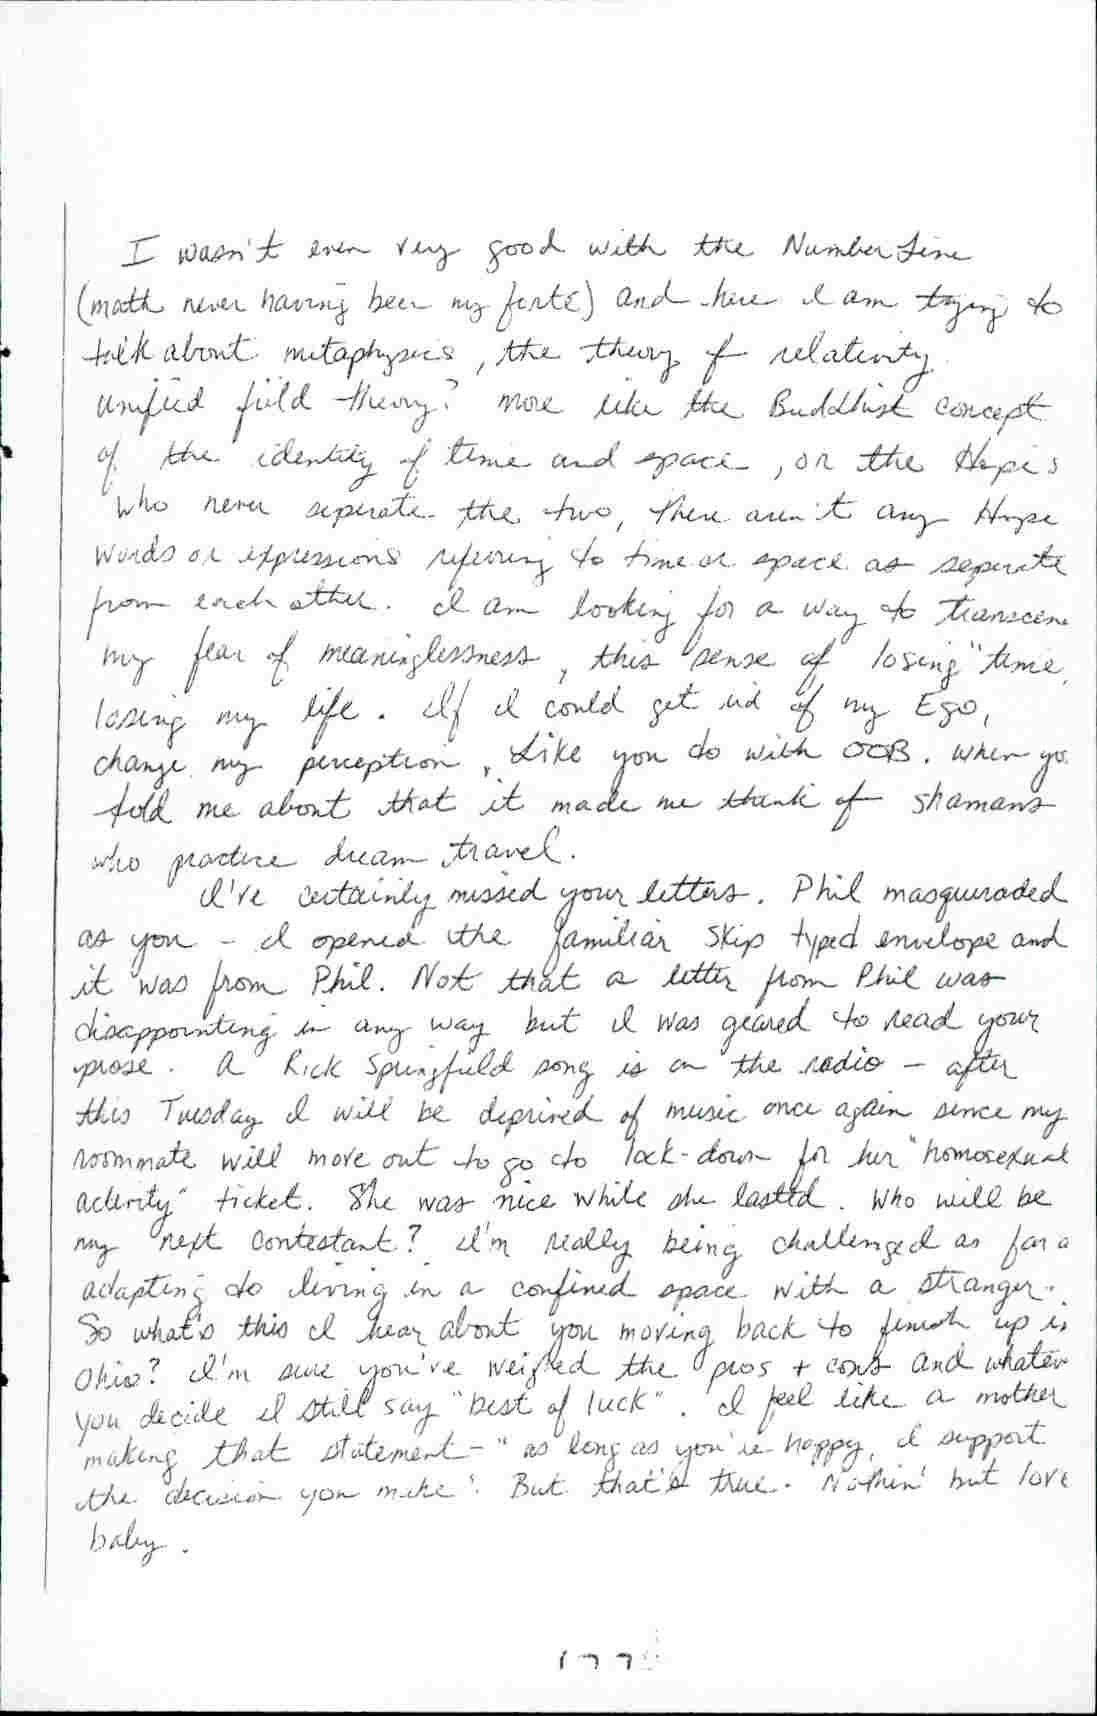 I wasn't even very good with the Number Line
(math never having been my forté) and here I am trying to
talk about metaphysics, the theory of relativity
unified field theory? More like the Buddhist concept
of the identity of time and space, or the Hopi's
who never seperate the two, there aren't any Hope
words or expressions referring to time or space as seperate
from each other. I am looking for a way to transcen
my fear of meaninglessness, this sense of losing" time,
losing my life. If I could get rid of my Ego,
change my perception, Like you do with OOB. When yo
told me about that it made me think of shamans
who practice dream travel.
I've certainly missed your letters. Phil masqueraded
as you - I opened the familiar Skip typed envelope and
it was from Phil. Not that a letter from Phil was
disappointing in any way but I was geared to read your
prose. A Rick Springfield song is on the radio - after
this Tuesday I will be deprived of music once again since my
roommate will move out to go to lock-down for her "homosexual
activity" ticket. She was nice while she lasted. Who will be
my next contestant? I'm really being challenged as far a
adapting to living in a confined space with a stranger.
So what's this I hear about you moving back to finish up in
Ohio? I'm sure you've weighed the pros + cons and whatev
you decide I still say "best of luck". I feel like a mother
making that statement - "as long as you're happy, I support
the decision you make". But that's true. Nothin' but love
baby.
177